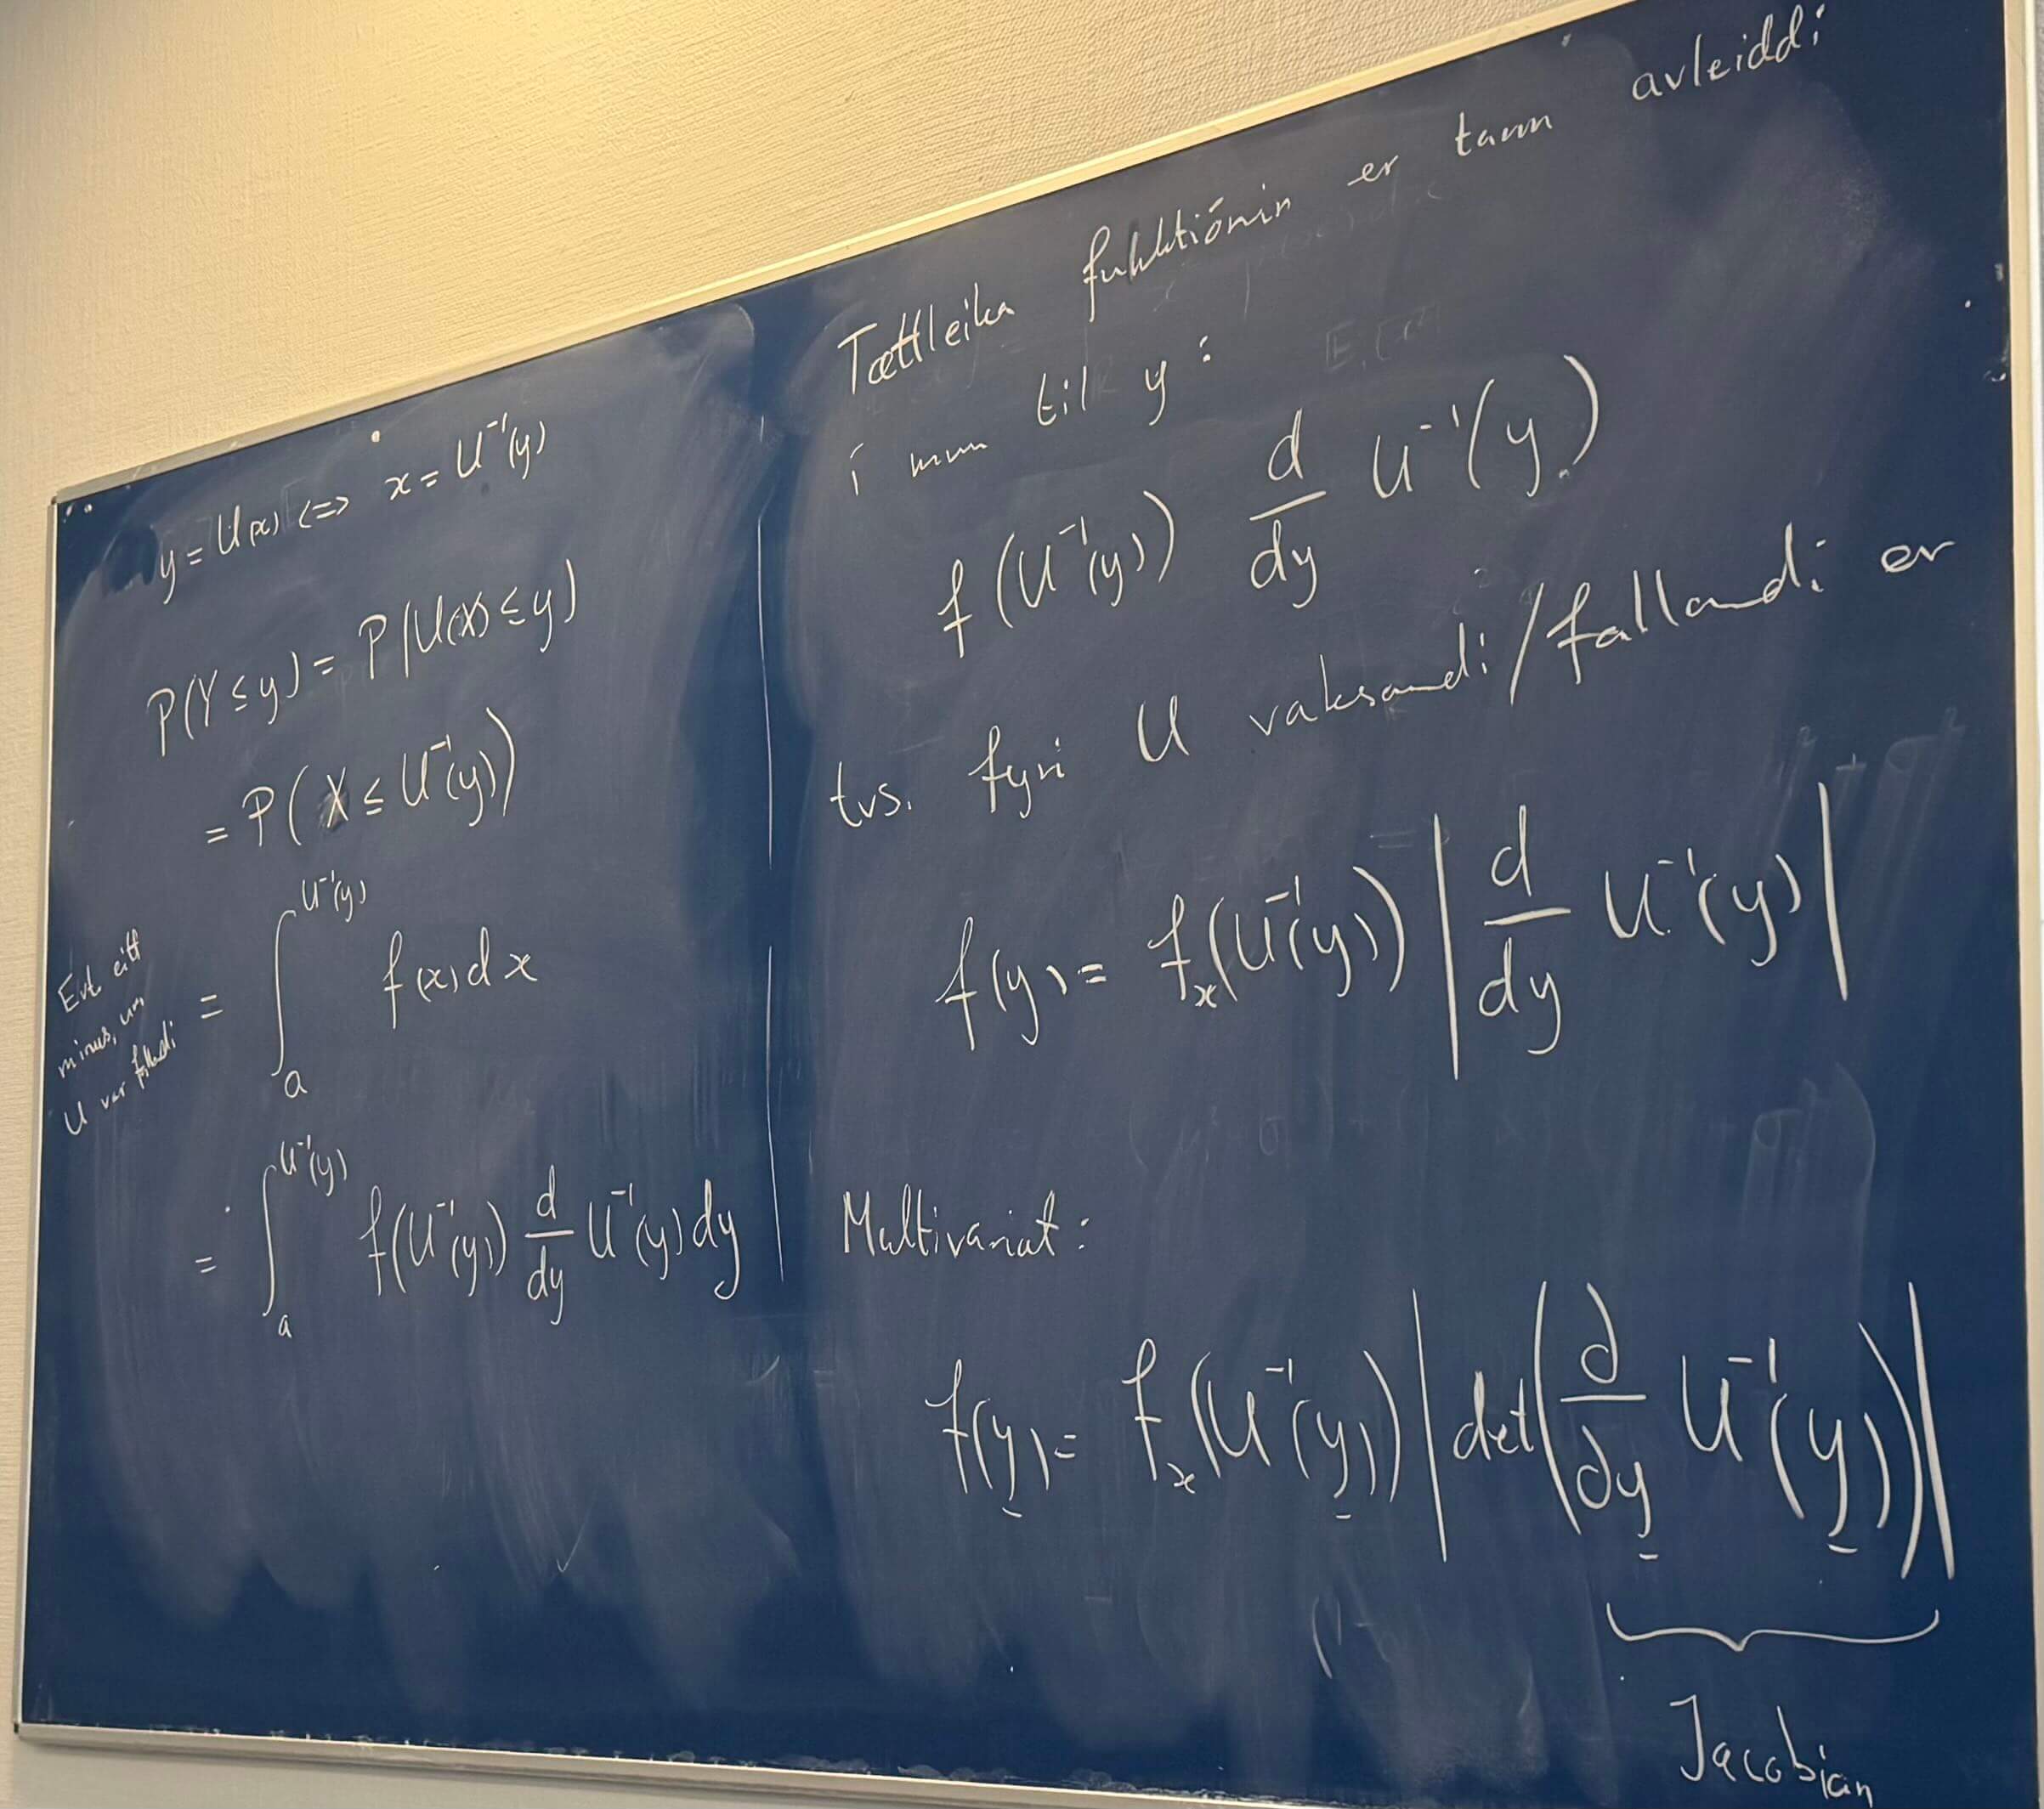 y = U(x) <=> x = U⁻¹(y)
P(Y ≤ y) = P(U(X) ≤ y)
= P(X ≤ U⁻¹(y))
= ∫_a^{U⁻¹(y)} f(x) dx
Evt. eitt
minus, um
U var fallandi
= ∫_a^{U⁻¹(y)} f(U⁻¹(y)) d/dy U⁻¹(y) dy
Tættleika funktiónin er tann avleiddi
í mun til y:
f(U⁻¹(y)) d/dy U⁻¹(y)
tvs. fyri U vaksandi/fallandi er
f(y) = f_x(U⁻¹(y)) | d/dy U⁻¹(y) |
Multivariat:
f(y̲) = f_x(U⁻¹(y̲)) | det( ∂/∂y̲ U⁻¹(y̲) ) |
Jacobian